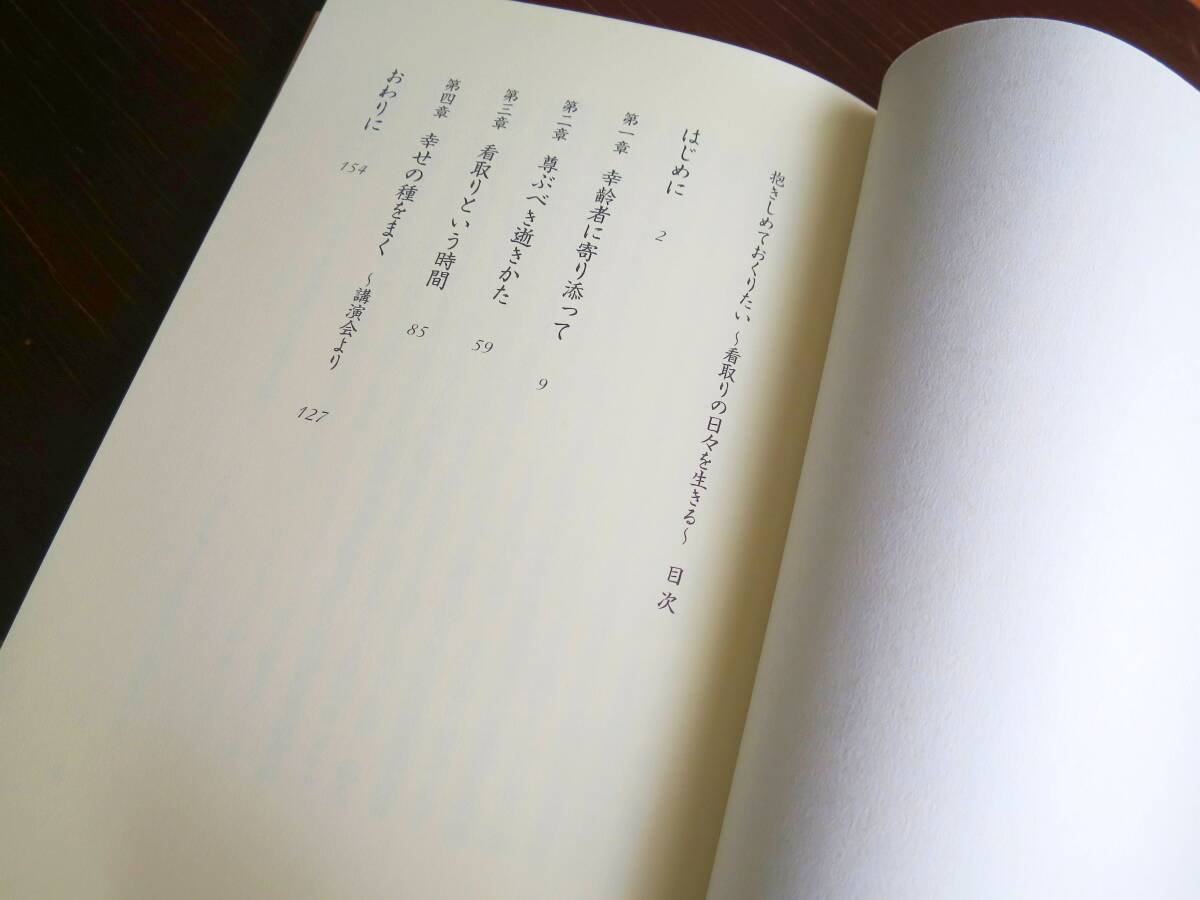 抱きしめておくりたい ～看取りの日々を生きる～ 目次
はじめに 2
第一章 幸齢者に寄り添って 9
第二章 尊ぶべき逝きかた 59
第三章 看取りという時間 85
第四章 幸せの種をまく ～講演会より 127
おわりに 154